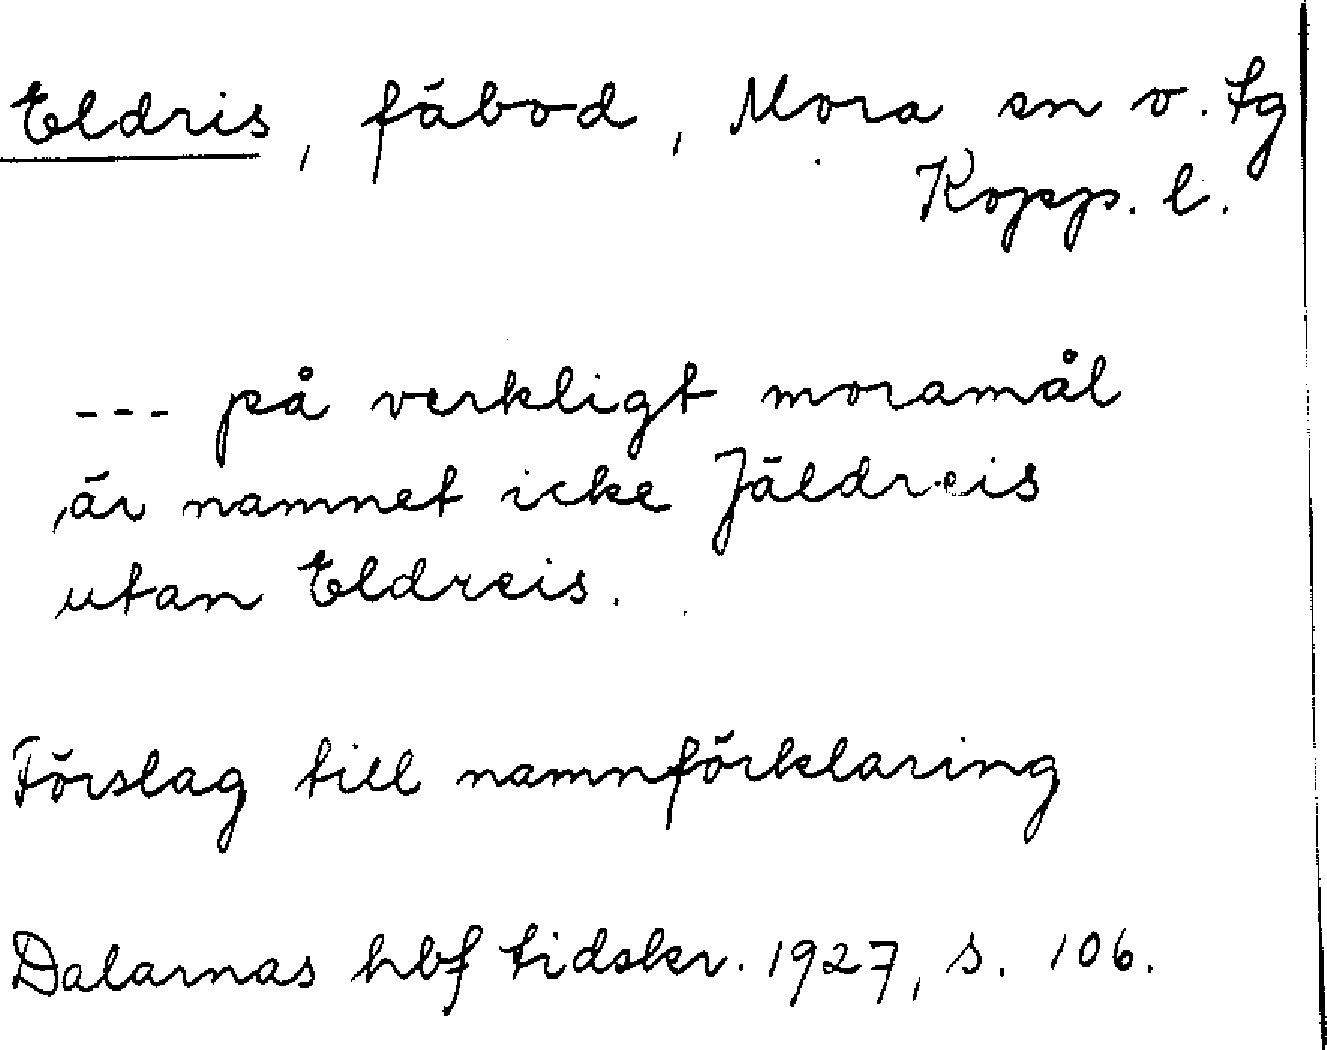 Eldris, fäbod, Mora sn v. tg
Kopp. l.
--- på verkligt moramål
är namnet icke Jäldreis
utan Eldreis.
Förslag till namnförklaring
Dalarnas hbf tidskr. 1927, s. 106.